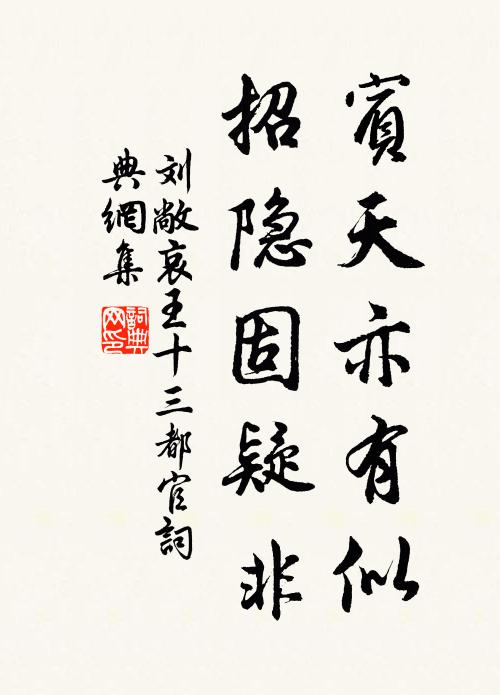 賔天亦有似
招隐固疑非
刘敞哀王十三都官詞
典網集
詞典网印